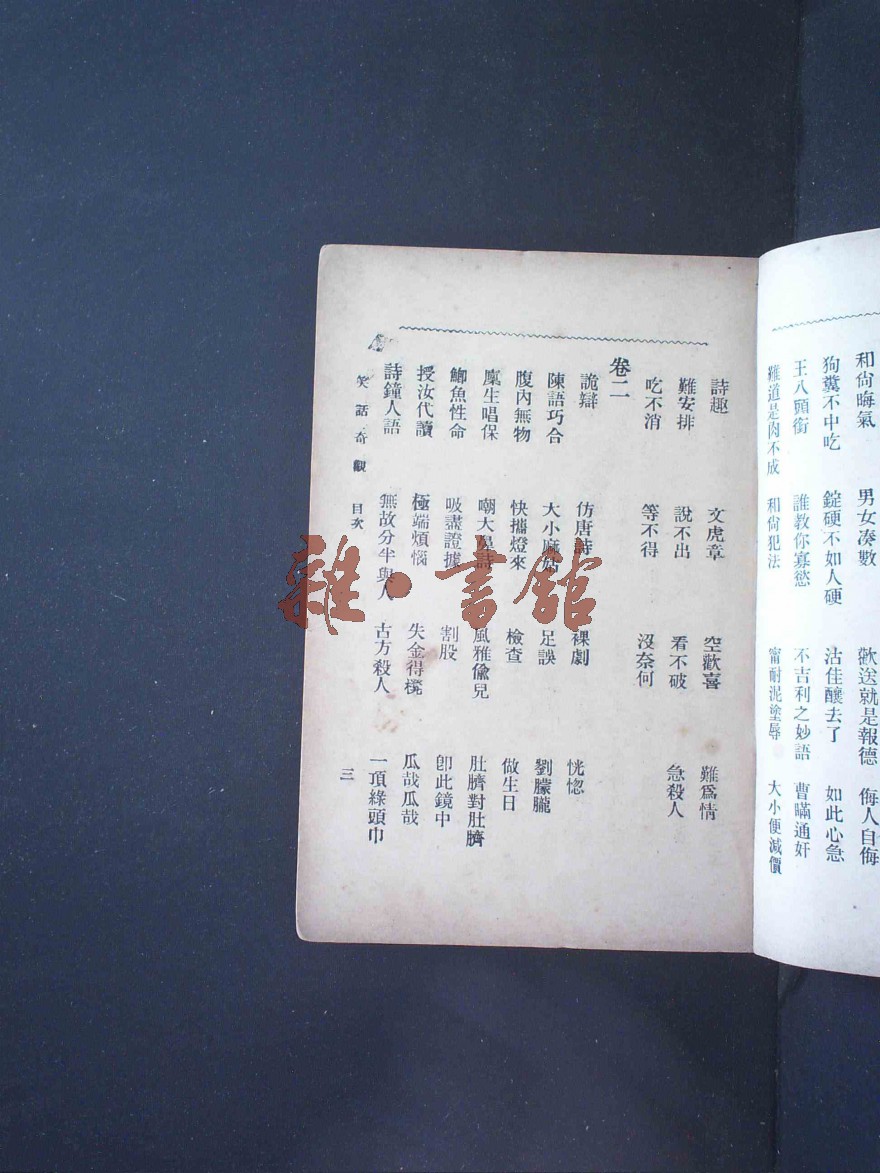 和尙晦氣　男女凑數　歡送就是報德　侮人自侮
狗糞不中吃　錠硬不如人硬　沽佳釀去了　如此心急
王八頭銜　誰教你寡慾　不吉利之妙語　曹瞞通奸
難道是肉不成　和尙犯法　甯耐泥塗辱　大小便減價
詩趣　文虎章　空歡喜　難爲情
難安排　說不出　看不破　急殺人
吃不消　等不得　沒奈何
卷二
詭辯　仿唐詩　裸劇　恍惚
陳語巧合　大小麻姑　足誤　劉朦朧
腹內無物　快攜燈來　檢查　做生日
廩生唱保　嘲大足詩　風雅偸兒　肚臍對肚臍
鯽魚性命　吸盡證據　割股　卽此鏡中
授汝代讀　極端煩惱　失金得　瓜哉瓜哉
詩鐘人語　無故分半與人　古方殺人　一頂綠頭巾
笑話奇觀　目次　三
雜·書館